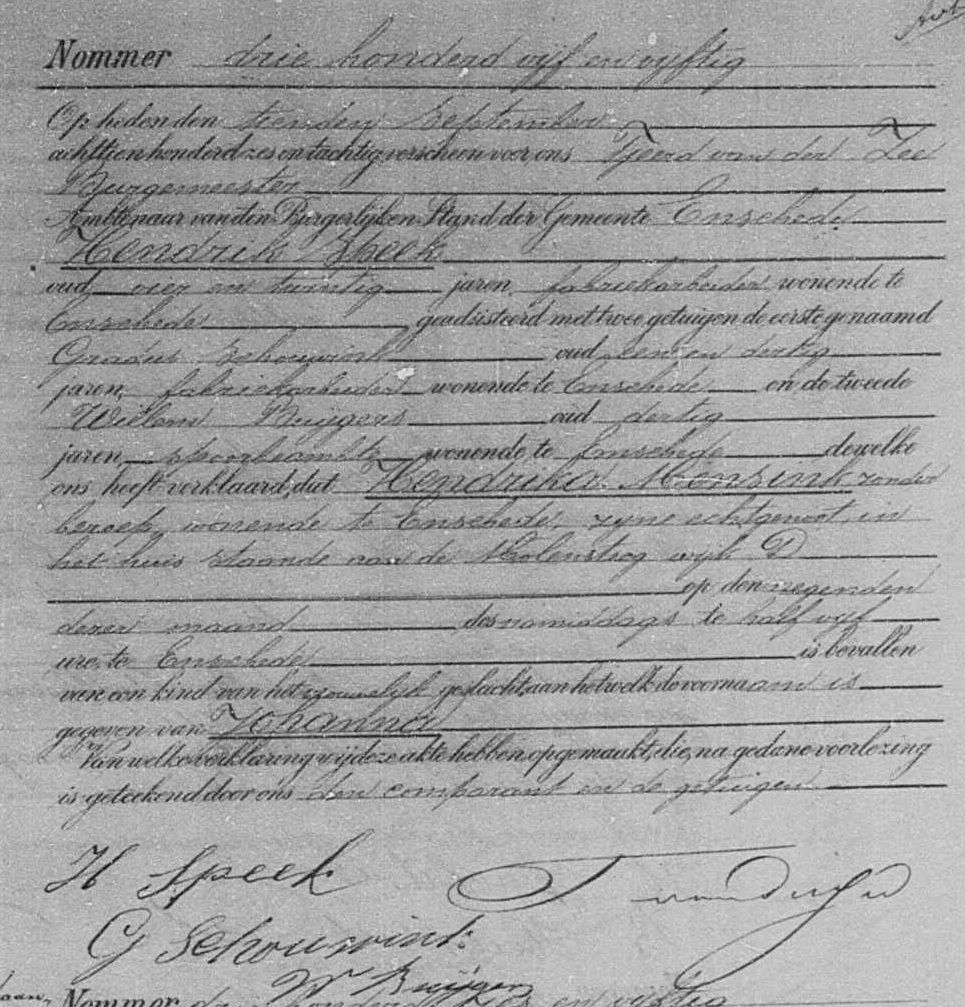 Nommer drie honderd vijf en vijftig
Op heden den tienden September
achttienhonderd zes en tachtig, verscheen voor ons Tjeerd van der Zee
Burgemeester
Ambtenaar van den Burgerlijken Stand der Gemeente Enschede
Hendrik Speek
oud vier en twintig jaren, fabriekarbeider, wonende te
Enschede, geadsisteerd met twee getuigen de eerste genaamd
Gradus Schouwink oud een en dertig
jaren, fabriekarbeider wonende te Enschede en de tweede
Willem Buijgers oud dertig
jaren, spoorbeambte wonende te Enschede dewelke
ons heeft verklaard, dat Hendrika Mensink zonder
beroep, wonende te Enschede, zyne echtgenoot, in
het huis staande aan de Molensteeg wyk D
op den negenden
dezer maand des namiddags te half vyf
ure, te Enschede is bevallen
van een kind van het vrouwelyk geslacht, aan hetwelk de voornaam is
gegeven van Johanna
Van welke verklaring wij deze akte hebben opgemaakt, die, na gedane voorlezing
is geteekend door ons den comparant en de getuigen.
H Speek
G Schouwink
W Buijgers
Nommer drie honderd zes en vyftig